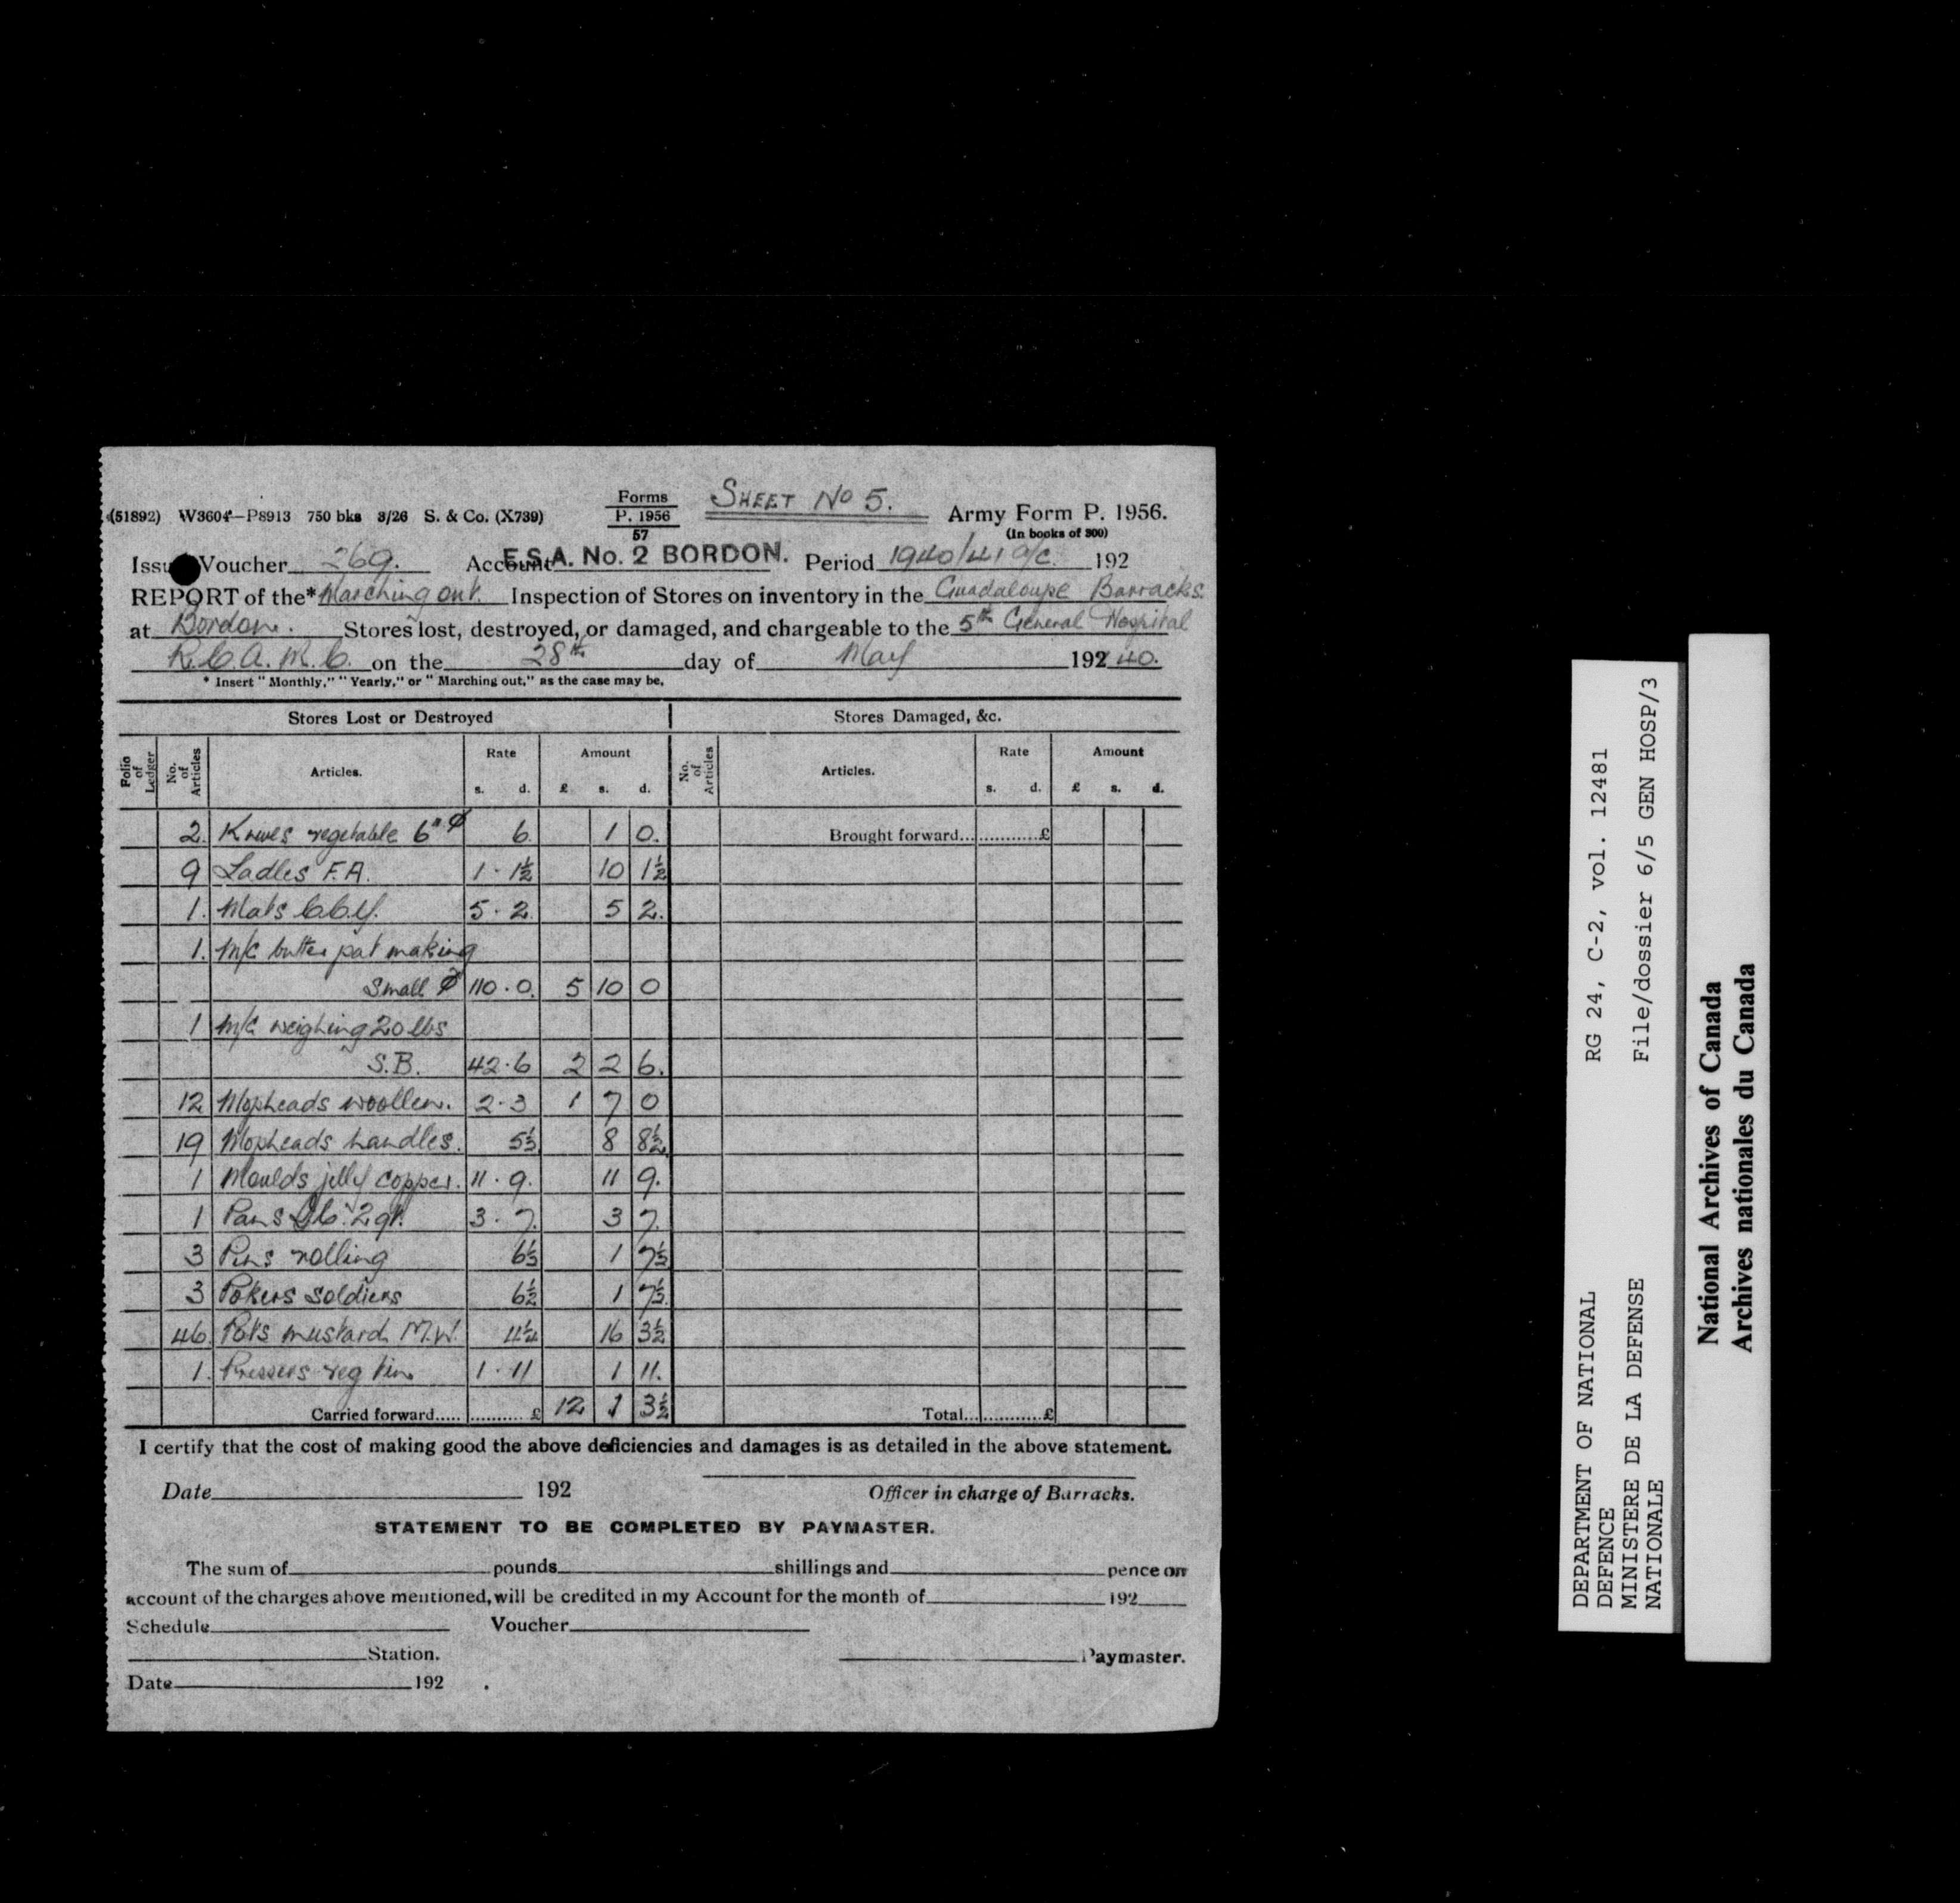 Forms
P. 1956
57
SHEET No 5.
(51892) W3604—P8913 750 bks 3/26 S. & Co. (X739)
Army Form P. 1956.
(In books of 300)
Issu Voucher 269. Account F.S.A. No. 2 BORDON. Period 1940/41 a/c. 192
REPORT of the* Marching out. Inspection of Stores on inventory in the Guadaloupe Barracks.
at Bordon. Stores lost, destroyed, or damaged, and chargeable to the 5th General Hospital
R.C.A.M.C. on the 28th day of May 192 40.
* Insert "Monthly," "Yearly," or "Marching out," as the case may be.
Stores Lost or Destroyed Stores Damaged, &c.
Folio of Ledger No. of Articles Articles. Rate Amount No. of Articles Articles. Rate Amount
s. d. £ s. d. s. d. £ s. d.
2. Knives vegetable 6" ø 6. 1 0. Brought forward... £
9 Ladles F.A. 1 . 1½ 10 1½
1. Mats C.C.Y. 5 . 2. 5 2.
1. M/C butter pat making
Small ø 110 . 0. 5 10 0
1 M/C weighing 20 lbs
S.B. 42 . 6 2 2 6.
12 Mopheads woollen. 2 . 3 1 7 0
19 Mopheads handles. 5½ 8 8½
1 Moulds jelly copper. 11 . 9. 11 9.
1 Pans 2 qt. 3 . 7. 3 7.
3 Pins rolling 6½ 1 7½
3 Pokers soldiers 6½ 1 7½
46. Pots mustard M.W. 4¼ 16 3½
1. Pressers veg tin 1 . 11 1 11.
Carried forward..... £ 12 1 3½ Total... £
I certify that the cost of making good the above deficiencies and damages is as detailed in the above statement.
Date 192
Officer in charge of Barracks.
STATEMENT TO BE COMPLETED BY PAYMASTER.
The sum of pounds shillings and pence on
account of the charges above mentioned, will be credited in my Account for the month of 192
Schedule Voucher
Station. Paymaster.
Date 192
DEPARTMENT OF NATIONAL DEFENCE
MINISTERE DE LA DEFENSE NATIONALE
RG 24, C-2, vol. 12481
File/dossier 6/5 GEN HOSP/3
National Archives of Canada
Archives nationales du Canada